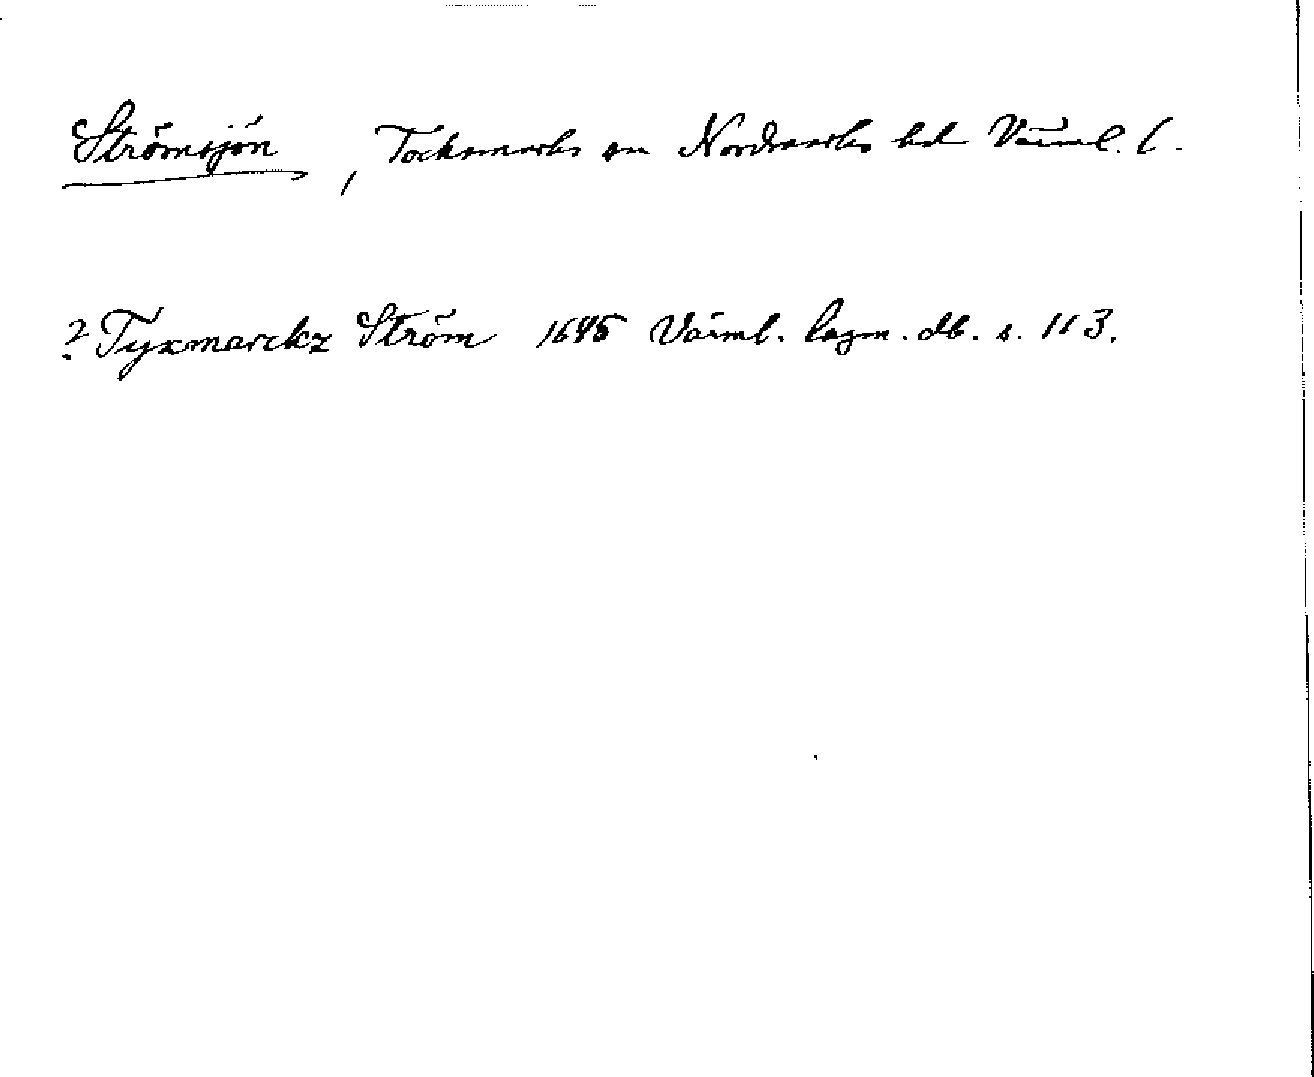 Strömsjön, Töcksmarks sn Nordmarks hd Värml. l.
? Tyxmarckz Ström 1695 Värml. lagm. db. s. 113.